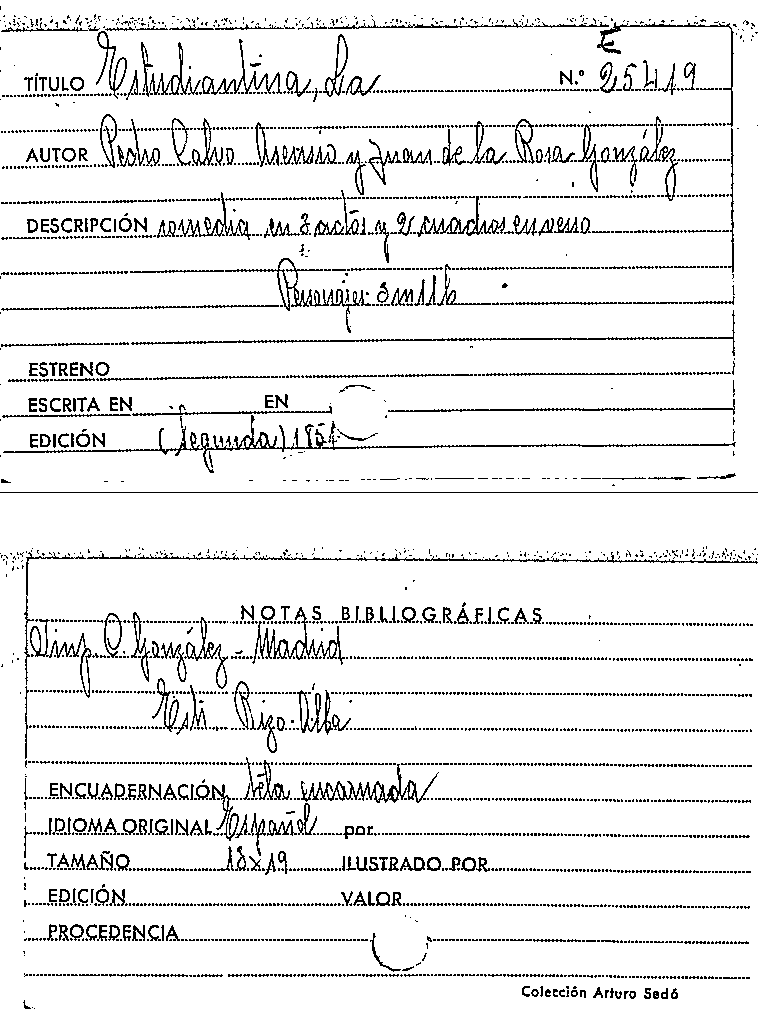 E
TÍTULO Estudiantina, La N.º 25419
AUTOR Pedro Calvo Asensio y Juan de la Rosa González
DESCRIPCIÓN comedia en 3 actos y 2 cuadros en verso
Personajes: 3 m 11 h
ESTRENO
ESCRITA EN EN
EDICIÓN (Segunda) 1851
NOTAS BIBLIOGRÁFICAS
Imp. C. González - Madrid
Rizo-Alba
ENCUADERNACIÓN tela encarnada
IDIOMA ORIGINAL Español por
TAMAÑO 13x19 ILUSTRADO POR
EDICIÓN VALOR
PROCEDENCIA
Colección Arturo Sedó